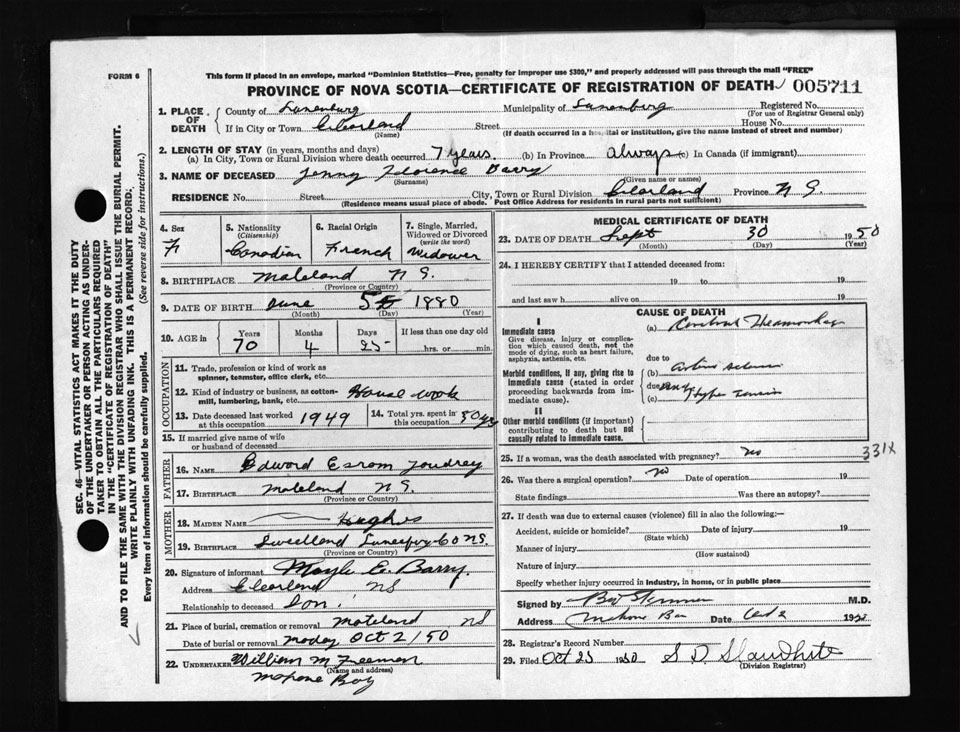 FORM 6
This form if placed in an envelope, marked "Dominion Statistics—Free, penalty for improper use $300," and properly addressed will pass through the mail "FREE"
PROVINCE OF NOVA SCOTIA—CERTIFICATE OF REGISTRATION OF DEATH 005711
1. PLACE OF DEATH
County of Lunenburg Municipality of Lunenburg Registered No.
(For use of Registrar General only)
If in City or Town Clearland Street House No.
(Name) (If death occurred in a hospital or institution, give the name instead of street and number)
2. LENGTH OF STAY (in years, months and days)
(a) In City, Town or Rural Division where death occurred 7 years. (b) In Province Always (c) In Canada (if immigrant)
3. NAME OF DECEASED Jenny Florence Barry
(Surname) (Given name or names)
RESIDENCE No. Street City, Town or Rural Division Clearland Province N S.
(Residence means usual place of abode. Post Office Address for residents in rural parts not sufficient)
4. Sex
F
5. Nationality
(Citizenship)
Canadian
6. Racial Origin
French
7. Single, Married, Widowed or Divorced
(write the word)
Widower
8. BIRTHPLACE Mateland N S.
(Province or Country)
9. DATE OF BIRTH June 5th 1880
(Month) (Day) (Year)
10. AGE in
Years Months Days If less than one day old
70 4 25 hrs. or min.
OCCUPATION
11. Trade, profession or kind of work as spinner, teamster, office clerk, etc.
12. Kind of industry or business, as cotton-mill, lumbering, bank, etc. House work
13. Date deceased last worked at this occupation 1949
14. Total yrs. spent in this occupation 50 yrs
15. If married give name of wife or husband of deceased
FATHER
16. Name Edward Esrom Joudrey
17. Birthplace Mateland N S.
(Province or Country)
MOTHER
18. MAIDEN NAME Hughes
19. BIRTHPLACE Lunenburg Co N S.
(Province or Country)
20. Signature of informant E. Barry.
Address Clearland NS
Relationship to deceased Son.
21. Place of burial, cremation or removal Mateland NS
Date of burial or removal Monday Oct 2/50
22. UNDERTAKER William M Freeman
(Name and address)
Mahone Bay
MEDICAL CERTIFICATE OF DEATH
23. DATE OF DEATH Sept 30 1950
(Month) (Day) (Year)
24. I HEREBY CERTIFY that I attended deceased from:
19 to 19
and last saw h alive on 19
CAUSE OF DEATH
I
Immediate cause
Give disease, injury or complication which caused death, not the mode of dying, such as heart failure, asphyxia, asthenia, etc.
(a) Cerebral Hemorrhage
due to
Morbid conditions, if any, giving rise to immediate cause (stated in order proceeding backwards from immediate cause).
(b)
due to
(c) Hypertension
II
Other morbid conditions (if important) contributing to death but not causally related to immediate cause.
25. If a woman, was the death associated with pregnancy? No 331X
26. Was there a surgical operation? No Date of operation 19
State findings Was there an autopsy?
27. If death was due to external causes (violence) fill in also the following:—
Accident, suicide or homicide? Date of injury 19
(State which)
Manner of injury
(How sustained)
Nature of injury
Specify whether injury occurred in industry, in home, or in public place
Signed by M.D.
Address Mahone Bay Date Oct 2 19
28. Registrar's Record Number
29. Filed Oct 25 1950 S D Slauenwhite
(Division Registrar)
SEC. 46—VITAL STATISTICS ACT MAKES IT THE DUTY
OF THE UNDERTAKER OR PERSON ACTING AS UNDER-
TAKER TO OBTAIN ALL THE PARTICULARS REQUIRED
IN THE "CERTIFICATE OF REGISTRATION OF DEATH"
AND TO FILE THE SAME WITH THE DIVISION REGISTRAR WHO SHALL ISSUE THE BURIAL PERMIT.
WRITE PLAINLY WITH UNFADING INK. THIS IS A PERMANENT RECORD:
Every item of information should be carefully supplied. (See reverse side for instructions.)